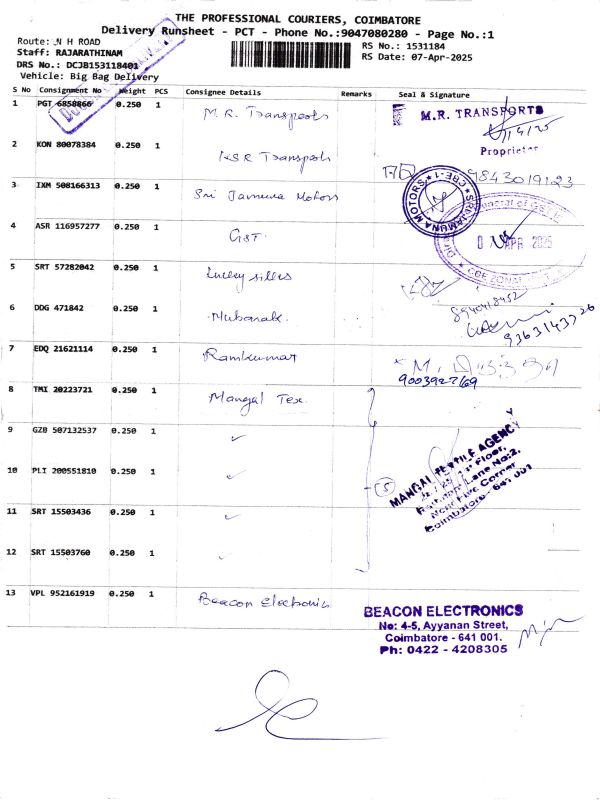 THE PROFESSIONAL COURIERS, COIMBATORE
Delivery Runsheet - PCT - Phone No.:9047080280 - Page No.:1
Route: N H ROAD
Staff: RAJARATHINAM
DRS No.: DCJB153118401
Vehicle: Big Bag Delivery
RS No.: 1531184
RS Date: 07-Apr-2025
S No Consignment No Weight PCS Consignee Details Remarks Seal & Signature
1 PGT 6858866 0.250 1 M.R. Transports
M.R. TRANSPORTS
Proprietor
2 KON 80078384 0.250 1 KSR Transports
9843019123
3 IXM 508166313 0.250 1 Sri Jamuna Motors
SRI JAMUNA MOTORS * CBE-1 *
4 ASR 116957277 0.250 1 GST
APR 2025
5 SRT 57282042 0.250 1
6 DDG 471842 0.250 1 Mubarak
8940418452
9363143726
7 EDQ 21621114 0.250 1 Ramkumar
9003927769
8 TMI 20223721 0.250 1 Mangal Tex
9 GZB 507132537 0.250 1 ✓
10 PLI 200551810 0.250 1 ✓
5
MANGAL TEXTILE AGENCY
Floor,
Lane No:2,
Near Five Corner
Coimbatore - 641 001
11 SRT 15503436 0.250 1 ✓
12 SRT 15503760 0.250 1 ✓
13 VPL 952161919 0.250 1 Beacon Electronics
BEACON ELECTRONICS
No: 4-5, Ayyanan Street,
Coimbatore - 641 001.
Ph: 0422 - 4208305